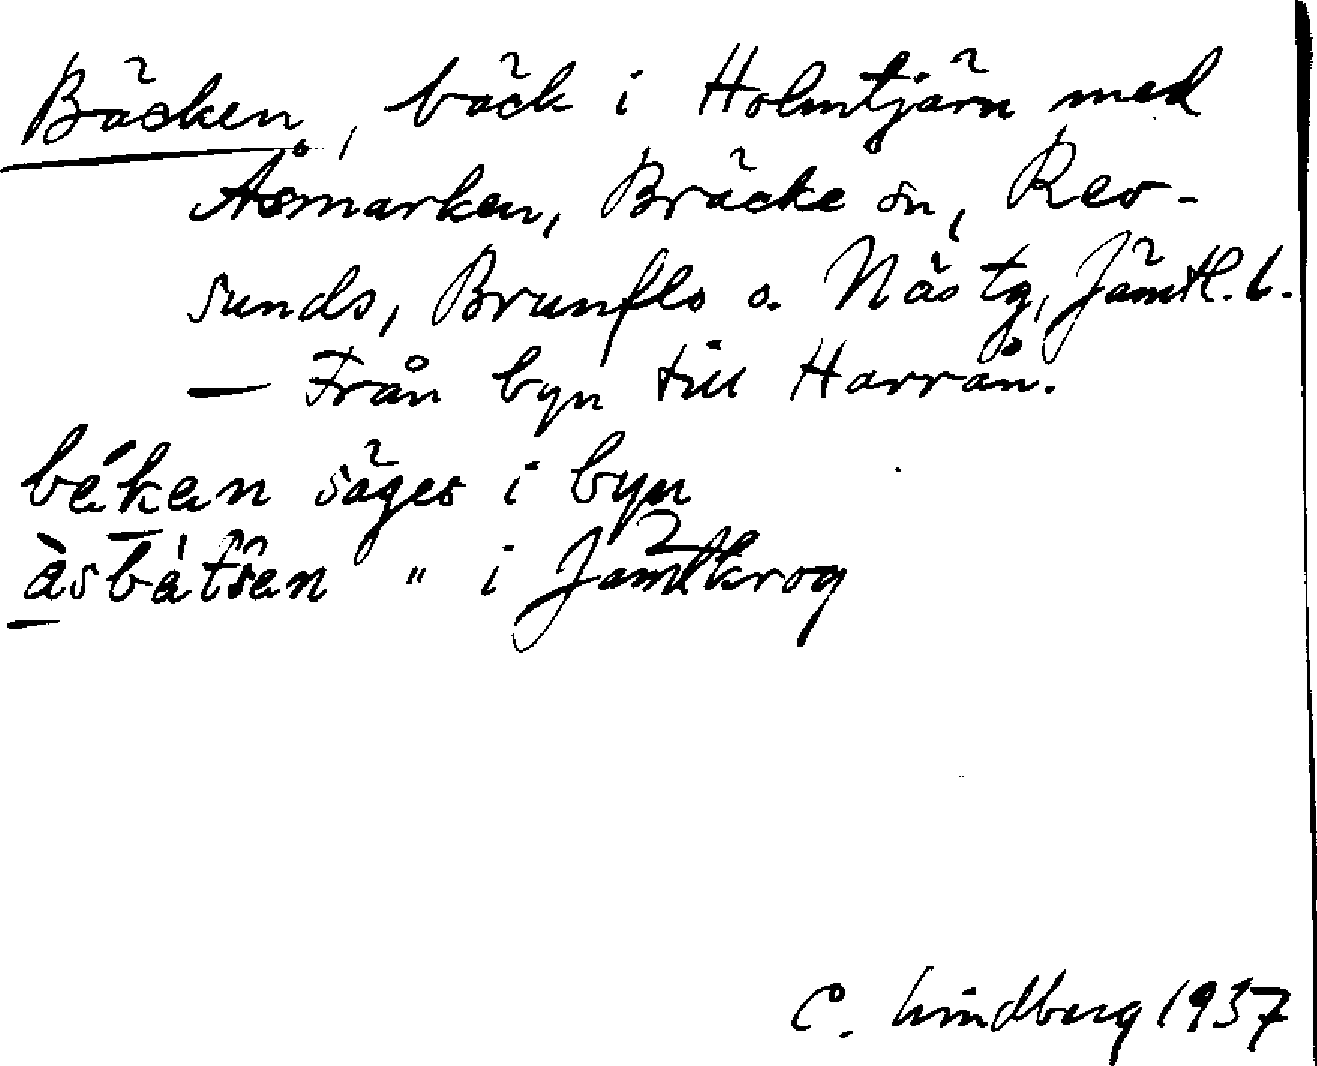 Bäcken, bäck i Holmtjärn med
Åsmarken, Bräcke sn, Rev-
sunds, Brunflo o. Näs tg, Jämtl. l.
— Från byn till Harrån.
säges i byn
" i Jämtkrog
C. Lindberg 1937